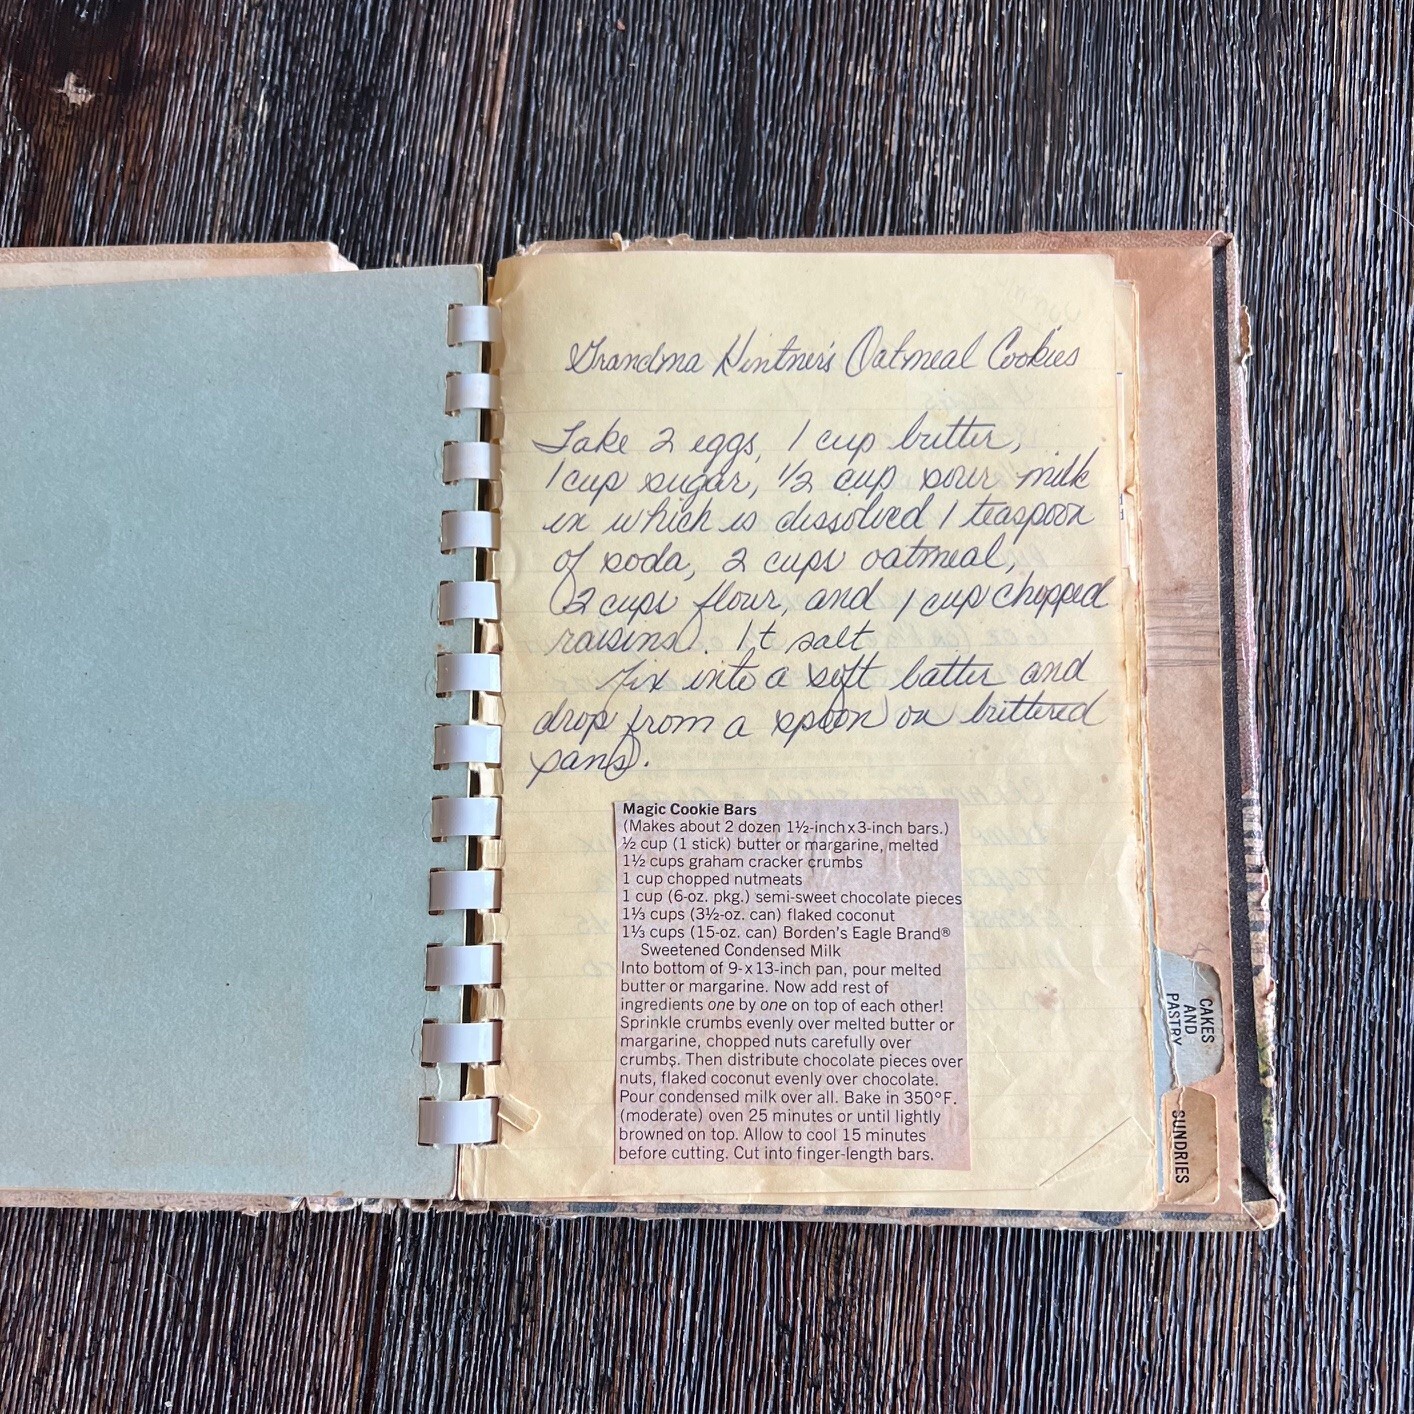 Grandma Hintner's Oatmeal Cookies
Take 2 eggs, 1 cup butter,
1 cup sugar, 1/2 cup sour milk
in which is dissolved 1 teaspoon
of soda, 2 cups oatmeal,
2 cups flour, and 1 cup chopped
raisins. 1 t salt
Fix into a soft batter and
drop from a spoon on buttered
pans.
Magic Cookie Bars
(Makes about 2 dozen 1½-inch x 3-inch bars.)
½ cup (1 stick) butter or margarine, melted
1½ cups graham cracker crumbs
1 cup chopped nutmeats
1 cup (6-oz. pkg.) semi-sweet chocolate pieces
1⅓ cups (3½-oz. can) flaked coconut
1⅓ cups (15-oz. can) Borden's Eagle Brand®
Sweetened Condensed Milk
Into bottom of 9- x 13-inch pan, pour melted
butter or margarine. Now add rest of
ingredients one by one on top of each other!
Sprinkle crumbs evenly over melted butter or
margarine, chopped nuts carefully over
crumbs. Then distribute chocolate pieces over
nuts, flaked coconut evenly over chocolate.
Pour condensed milk over all. Bake in 350°F.
(moderate) oven 25 minutes or until lightly
browned on top. Allow to cool 15 minutes
before cutting. Cut into finger-length bars.
CAKES
AND
PASTRY
SUNDRIES